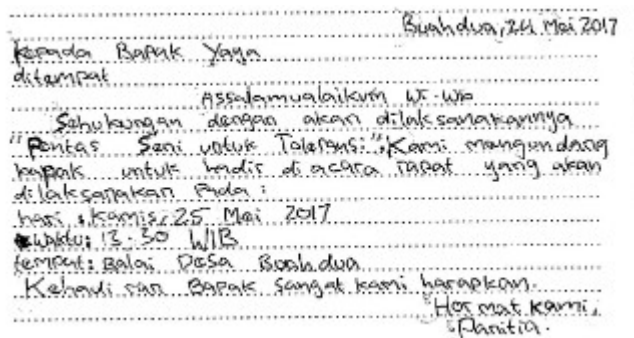 Buahdua, 24 Mei 2017
Kepada Bapak Yaga
ditempat
Assalamualaikum Wr-Wb
Sehubungan dengan akan dilaksanakannya
"Pentas Seni untuk Toleransi". Kami mengundang
bapak untuk hadir di acara rapat yang akan
dilaksanakan Pada :
hari : Kamis, 25 Mei 2017
waktu : 13.30 WIB
tempat : Balai Desa Buahdua
Kehadi ran Bapak Sangat kami harapkan.
Hormat Kami,
Panitia.